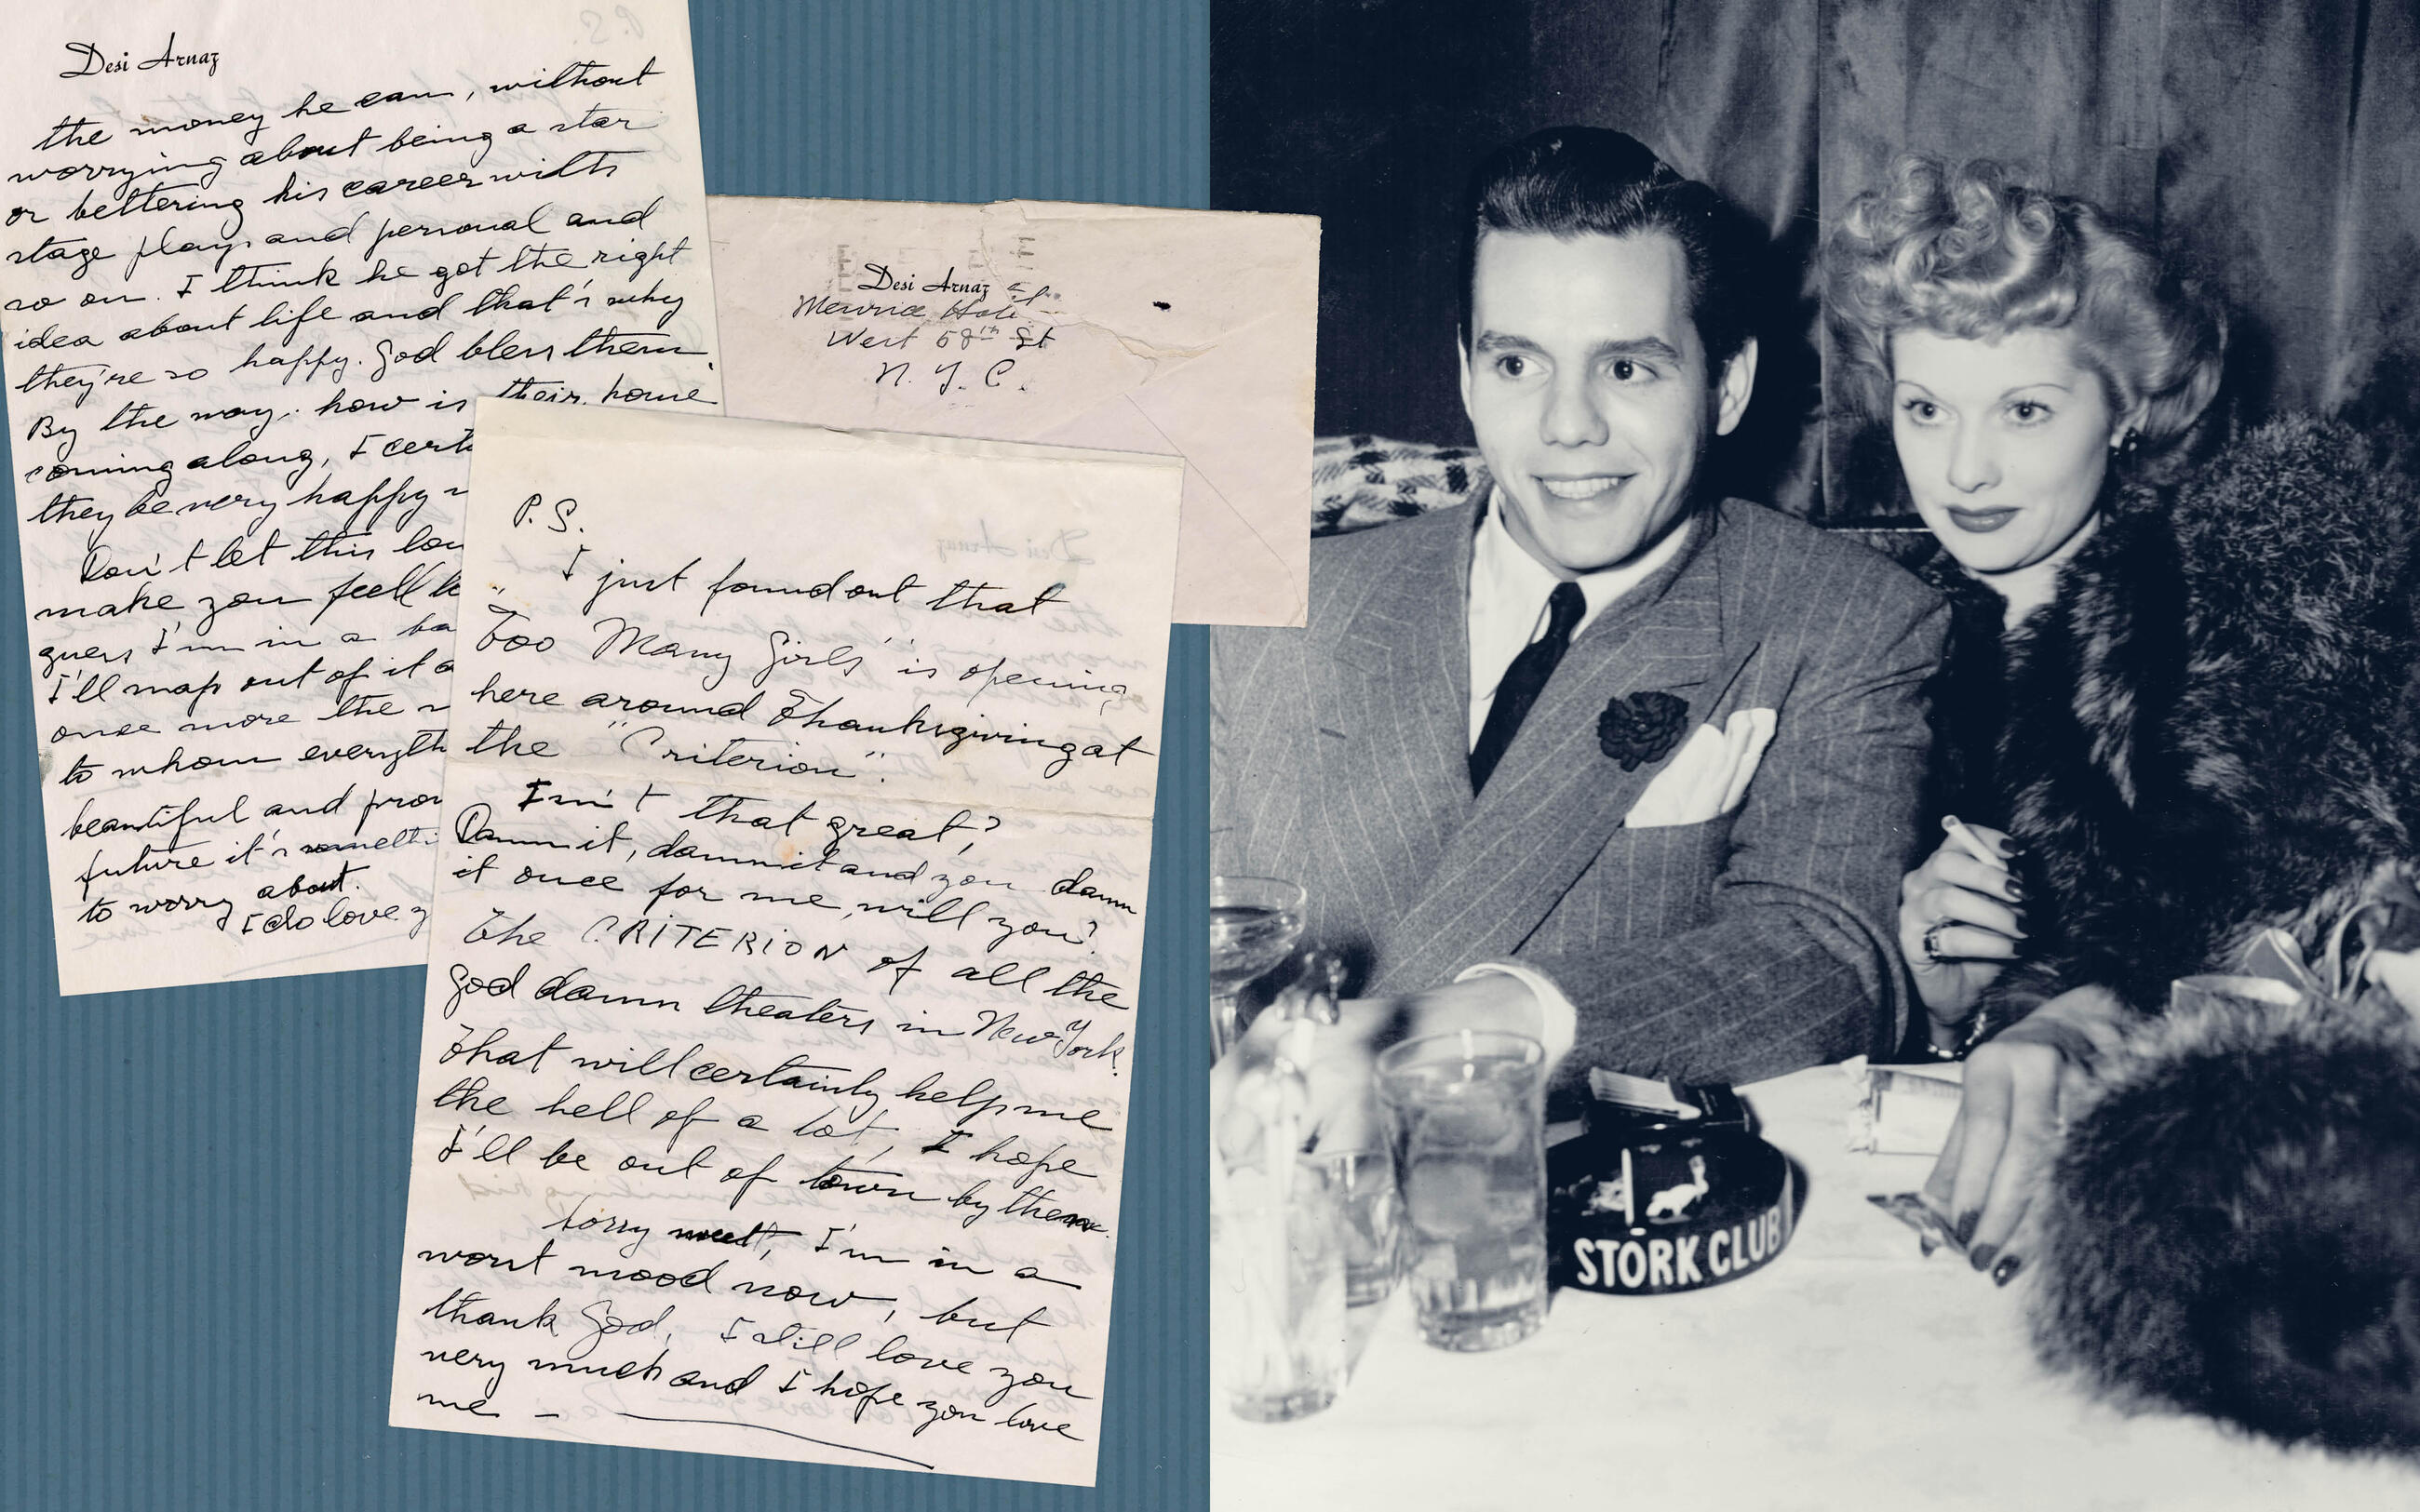 Desi Arnaz
the money he earn, without
worrying about being a star
or bettering his career with
stage plays and personal and
so on. I think he got the right
idea about life and that's why
they're so happy. God bless them.
By the way, how is their home
coming along, I cert
they be very happy
Don't let this
make you feel
guess I'm in a ba
I'll snap out of it a
once more the
to whom everyth
beautiful and prom
future it's
to worry about.
I do love y
Desi Arnaz
Meurice Hotel
West 58th St
N.Y.C.
P.S.
I just found out that
"Too Many Girls" is opening
here around Thanksgiving at
the "Criterion".
Isn't that great?
Damn it, dammit and you damn
it once for me, will you?
The CRITERION of all the
God damn theaters in New York.
That will certainly help me
the hell of a lot, I hope
I'll be out of town by then.
Sorry I'm in a
worst mood now, but
thank God, I still love you
very much and I hope you love
me —
STORK CLUB